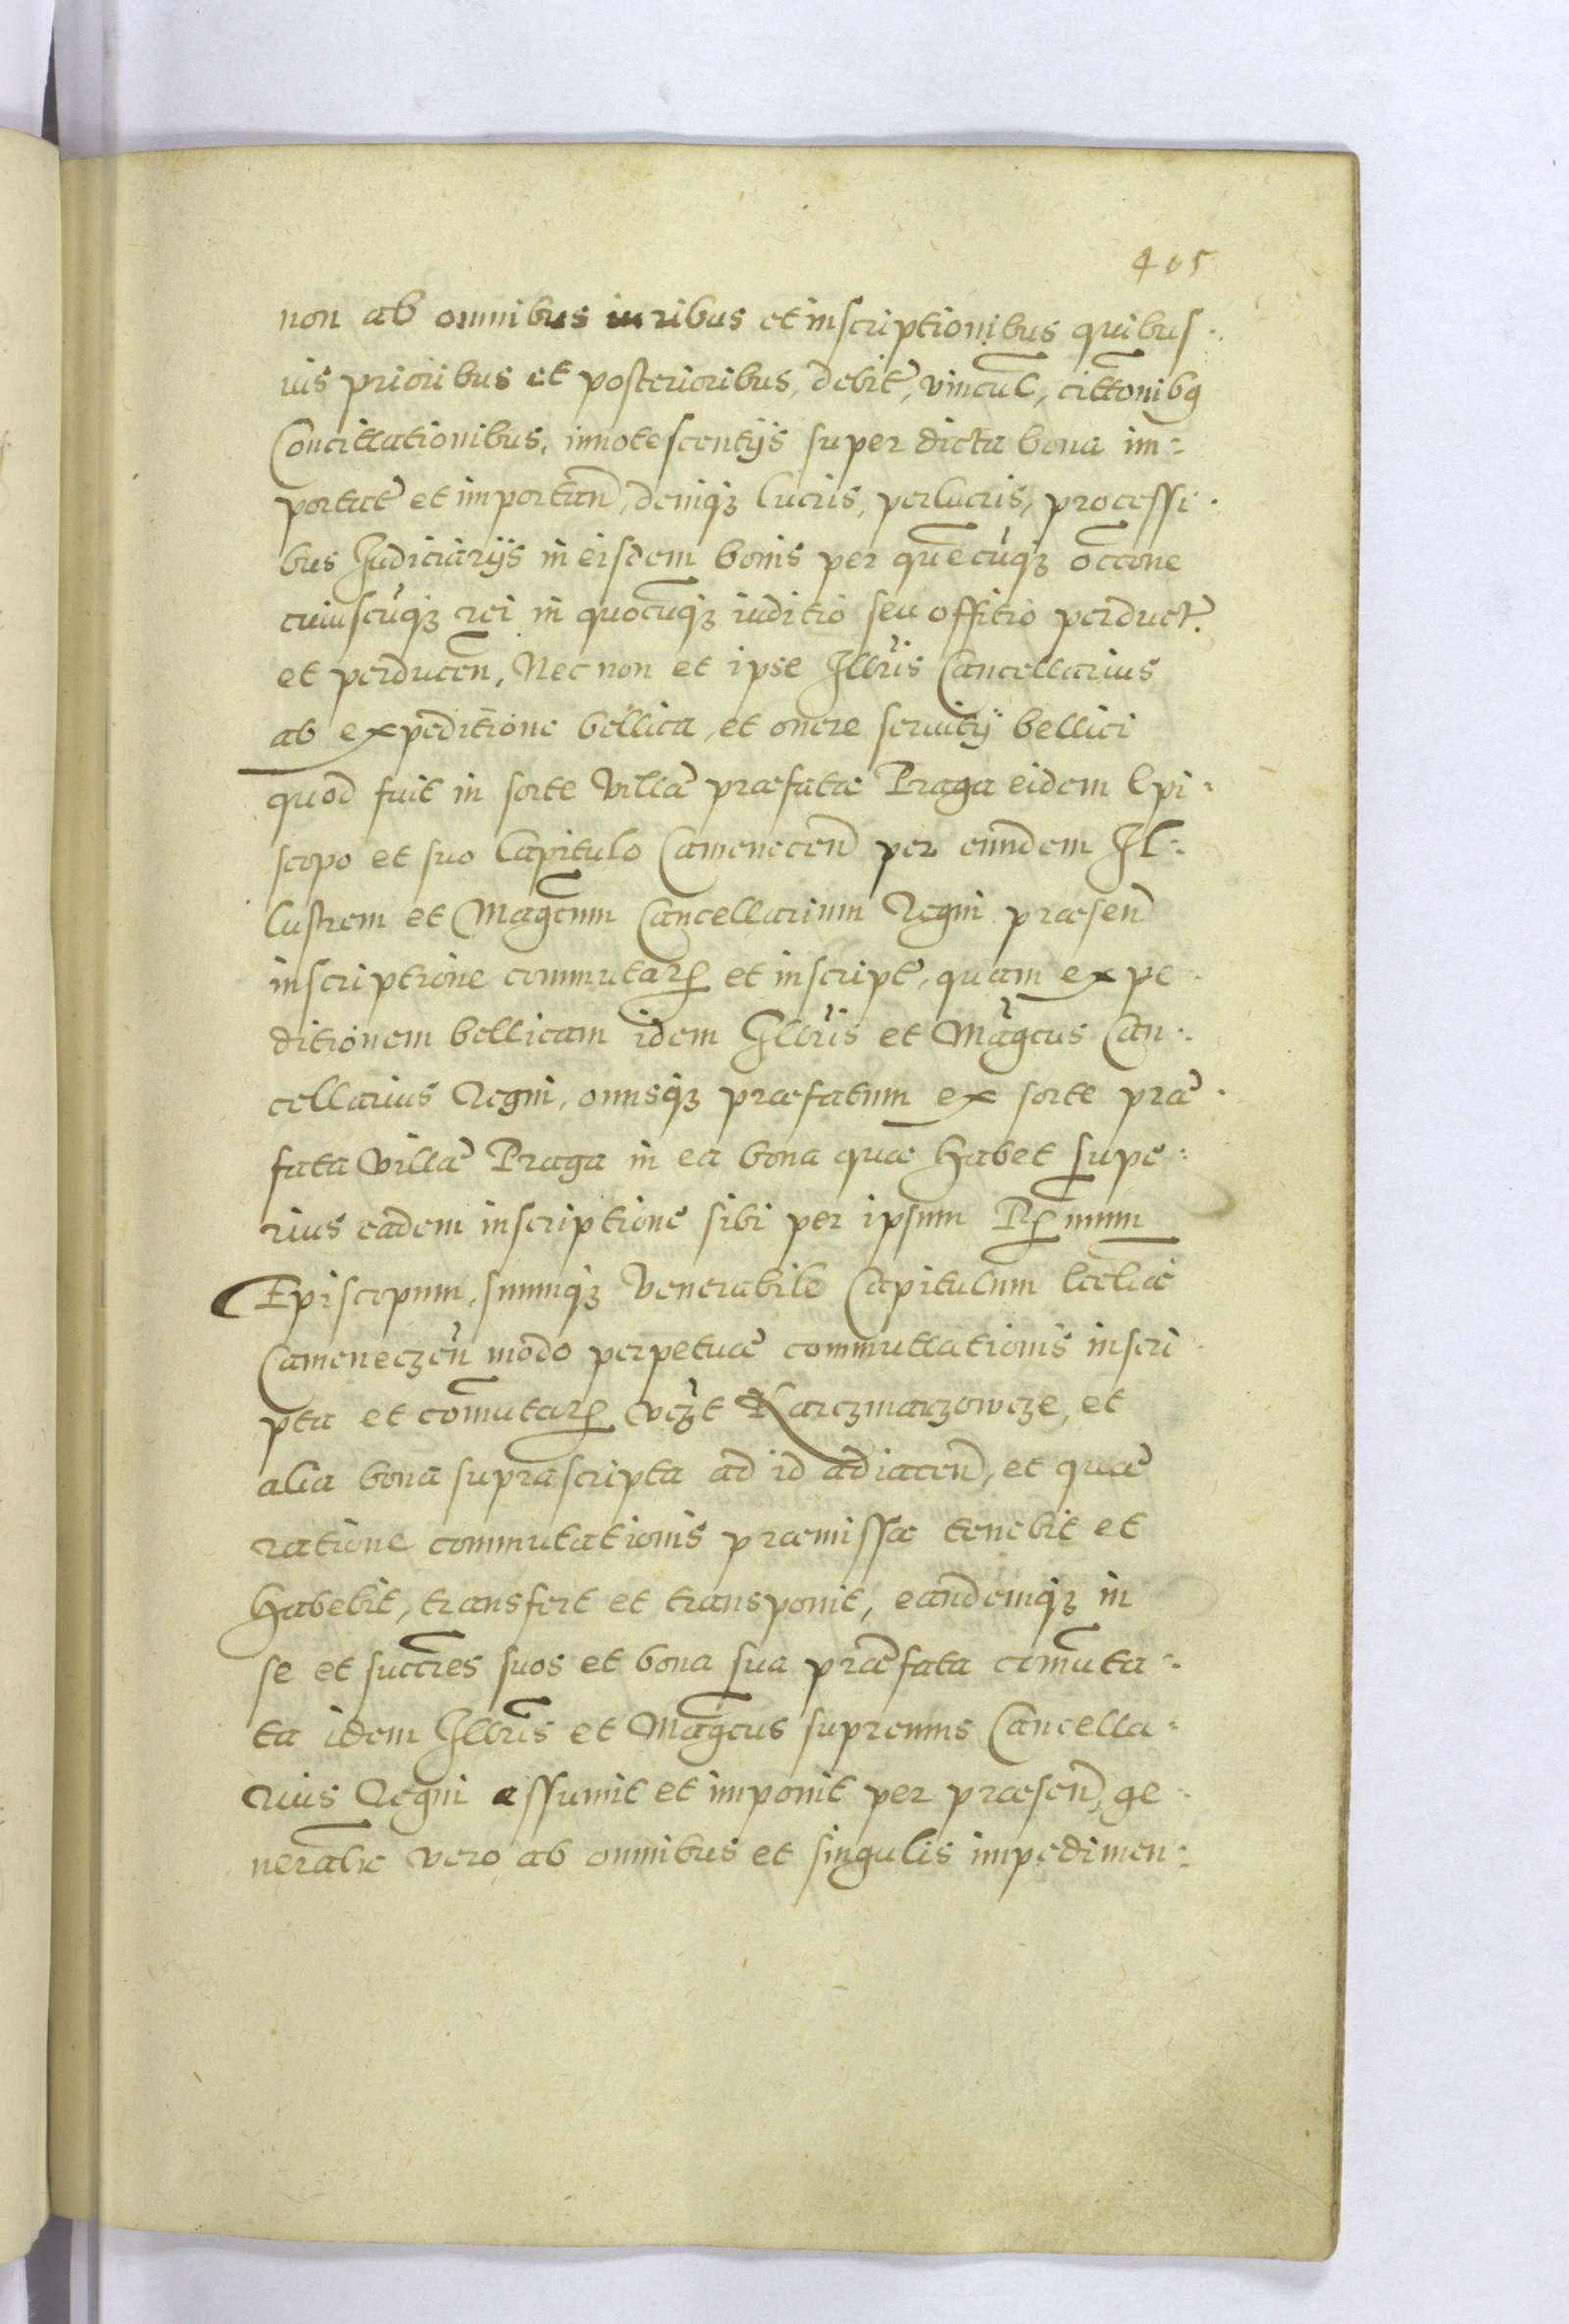 405
non ab omnibus iuribus et inscriptionibus quibus-
uis prioribus et posterioribus, debit, vincul, cittonibq
Concittationibus, innotescentijs super dicta bona im-
portat et importan, deniqz lucris, perlucris, processi-
bus Iudiciarijs in eisdem bonis per quemcuqz occone
cuiuscuqz rei in quocuqz iuditio seu offitio perduct.
et perducen, Nec non et ipse Illris Cancellarius
ab expeditione bellica, et onere seruitij bellici
quod fuit in sorte villæ præfatæ Praga eidem Epi-
scopo et suo Capitulo Camenecen per eundem Il-
lustrem et Magcum Cancellarium Regni præsen
inscriptione commutaꝝ et inscript, quam expe-
ditionem bellicam idem Illris et Magcus Can-
cellarius Regni, onusqz præfatum ex sorte præ-
fata villæ Praga in ea bona quæ habet supe-
rius eadem inscriptione sibi per ipsum Rꝝmum
Episcopum, suumqz Venerabile Capitulum Ecclæ
Cameneczen modo perpetuæ commuttationis inscri-
pta et comutaꝝ vczt Karczmarzowcze, et
alia bona suprascripta ad id adiacen, et quæ
ratione commutationis præmissæ tenebit et
habebit, transfert et transponit, eandemqz in
se et succres suos et bona sua præfata comuta-
ta idem Illris et Magcus supremus Cancella-
rius Regni assumit et imponit per præsen, ge-
neralir vero ab omnibus et singulis impedimen-